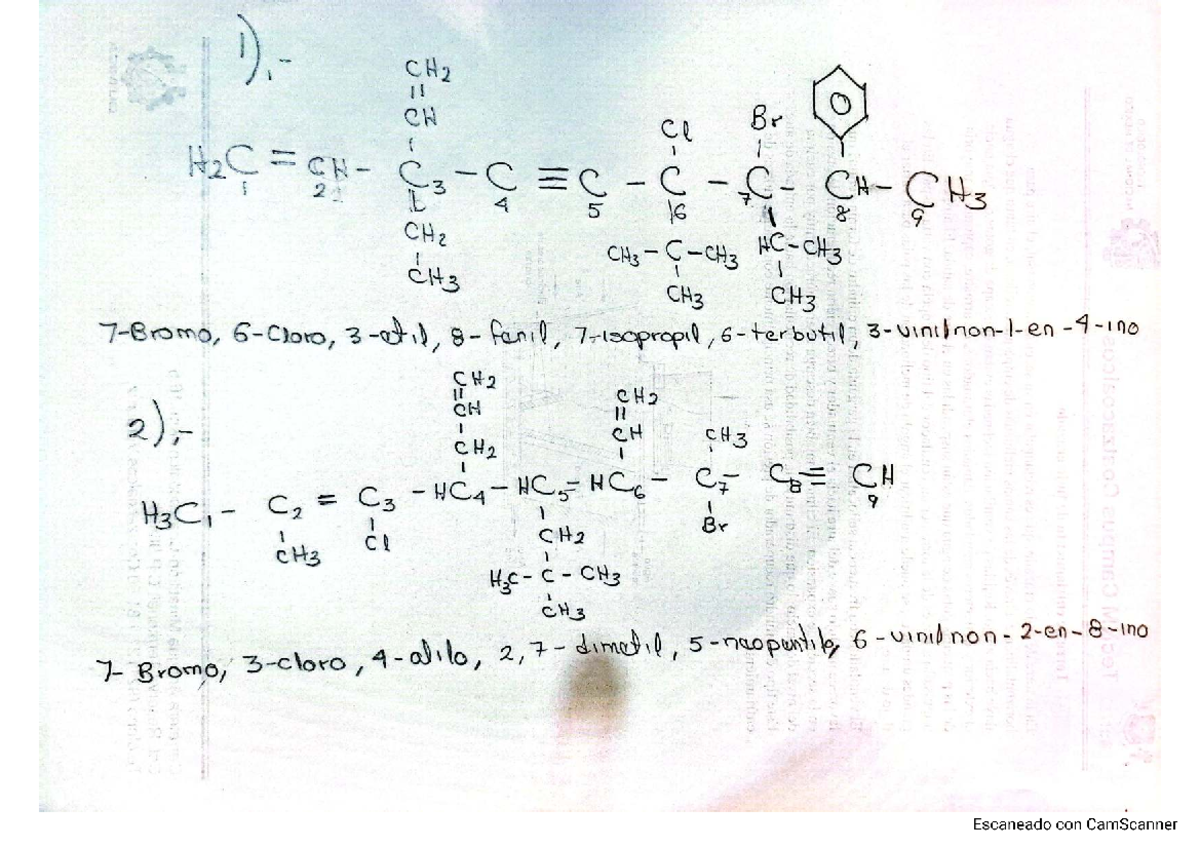 1).-
CH2
||
CH
Cl
Br
H2C = CH - C3 - C ≡ C - C - C - CH - CH3
1 2 4 5 6 7 8 9
CH2
CH3
CH3 - C - CH3 HC - CH3
CH3 CH3
7-Bromo, 6-Cloro, 3-etil, 8-fenil, 7-isopropil, 6-terbutil, 3-vinil non-1-en-4-ino
2).-
CH2
||
CH
CH2
CH2
||
CH
CH3
H3C1 - C2 = C3 - HC4 - HC5 - HC6 - C7 - C8 ≡ CH
9
CH3 Cl CH2 Br
H3C - C - CH3
CH3
7- Bromo, 3-cloro, 4-alilo, 2,7-dimetil, 5-neopentilo, 6-vinil non-2-en-8-ino
Escaneado con CamScanner